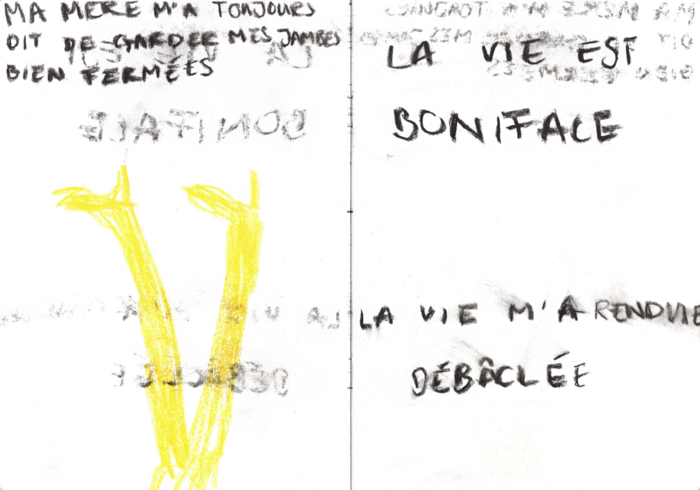 MA MERE M'A TOUJOURS
DIT DE GARDER MES JAMBES
BIEN FERMÉES
LA VIE EST
BONIFACE
LA VIE M'A RENDUE
DÉBÂCLÉE